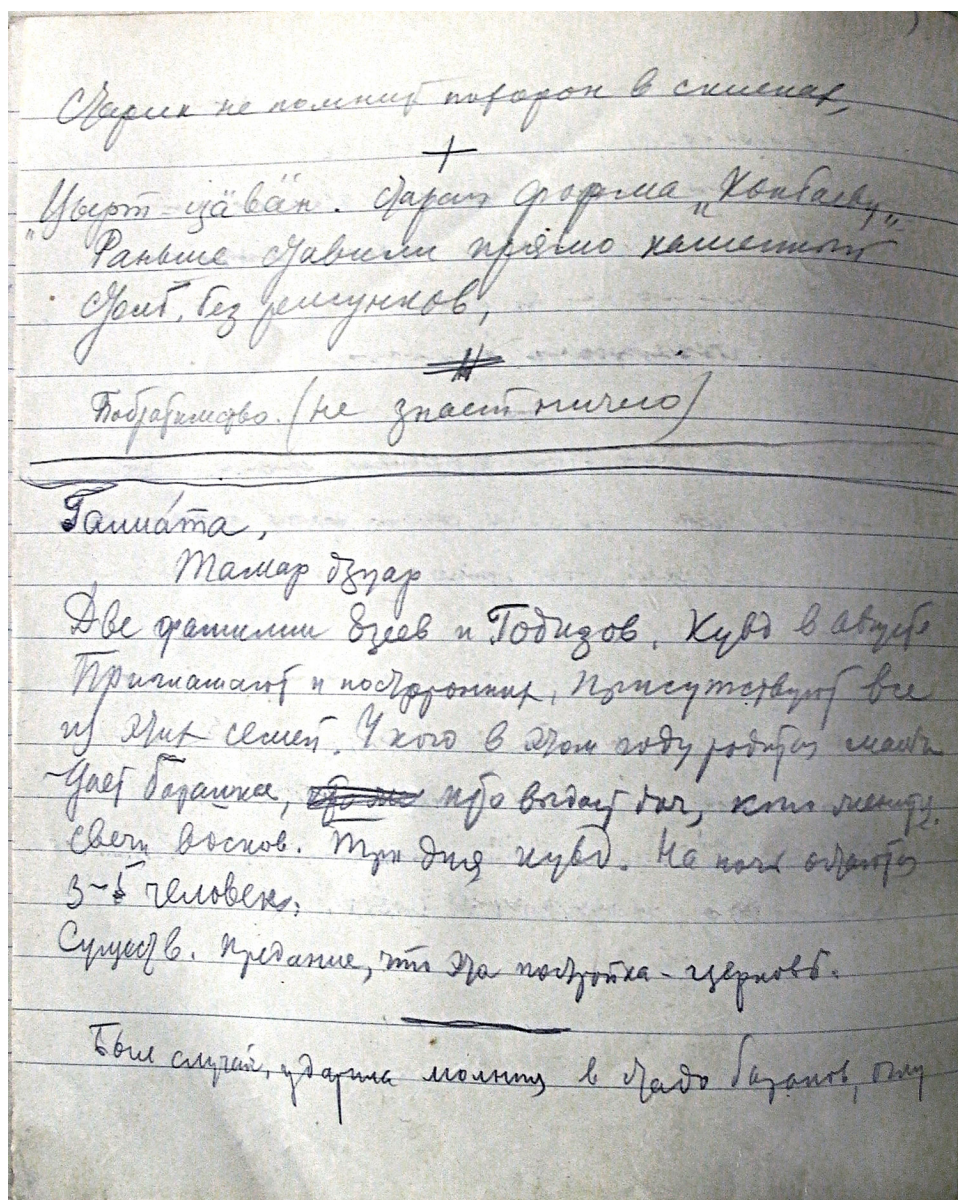 Старик не помнит похорон в склепах,
+
"Цырт цäвäн. Старая форма "Хонбаевы"
Раньше ставили прямо каменный
столб, без рисунков,
Побратимство. (не знает ничего)
Галиáта,
Тамар дзуар
Две фамилии Дзеев и Годизов, Кувд в августе
Приглашают и посторонних, присутствуют все
из этих семей. У кого в этом году родится мальч
дает барашка, кто выдает дочь, кто женится.
свечи восков. Три дня кувд. На ночь остаются
3-5 человек,
Существ. предание, что эта постройка - церковь.
Был случай, ударила молния в стадо баранов,